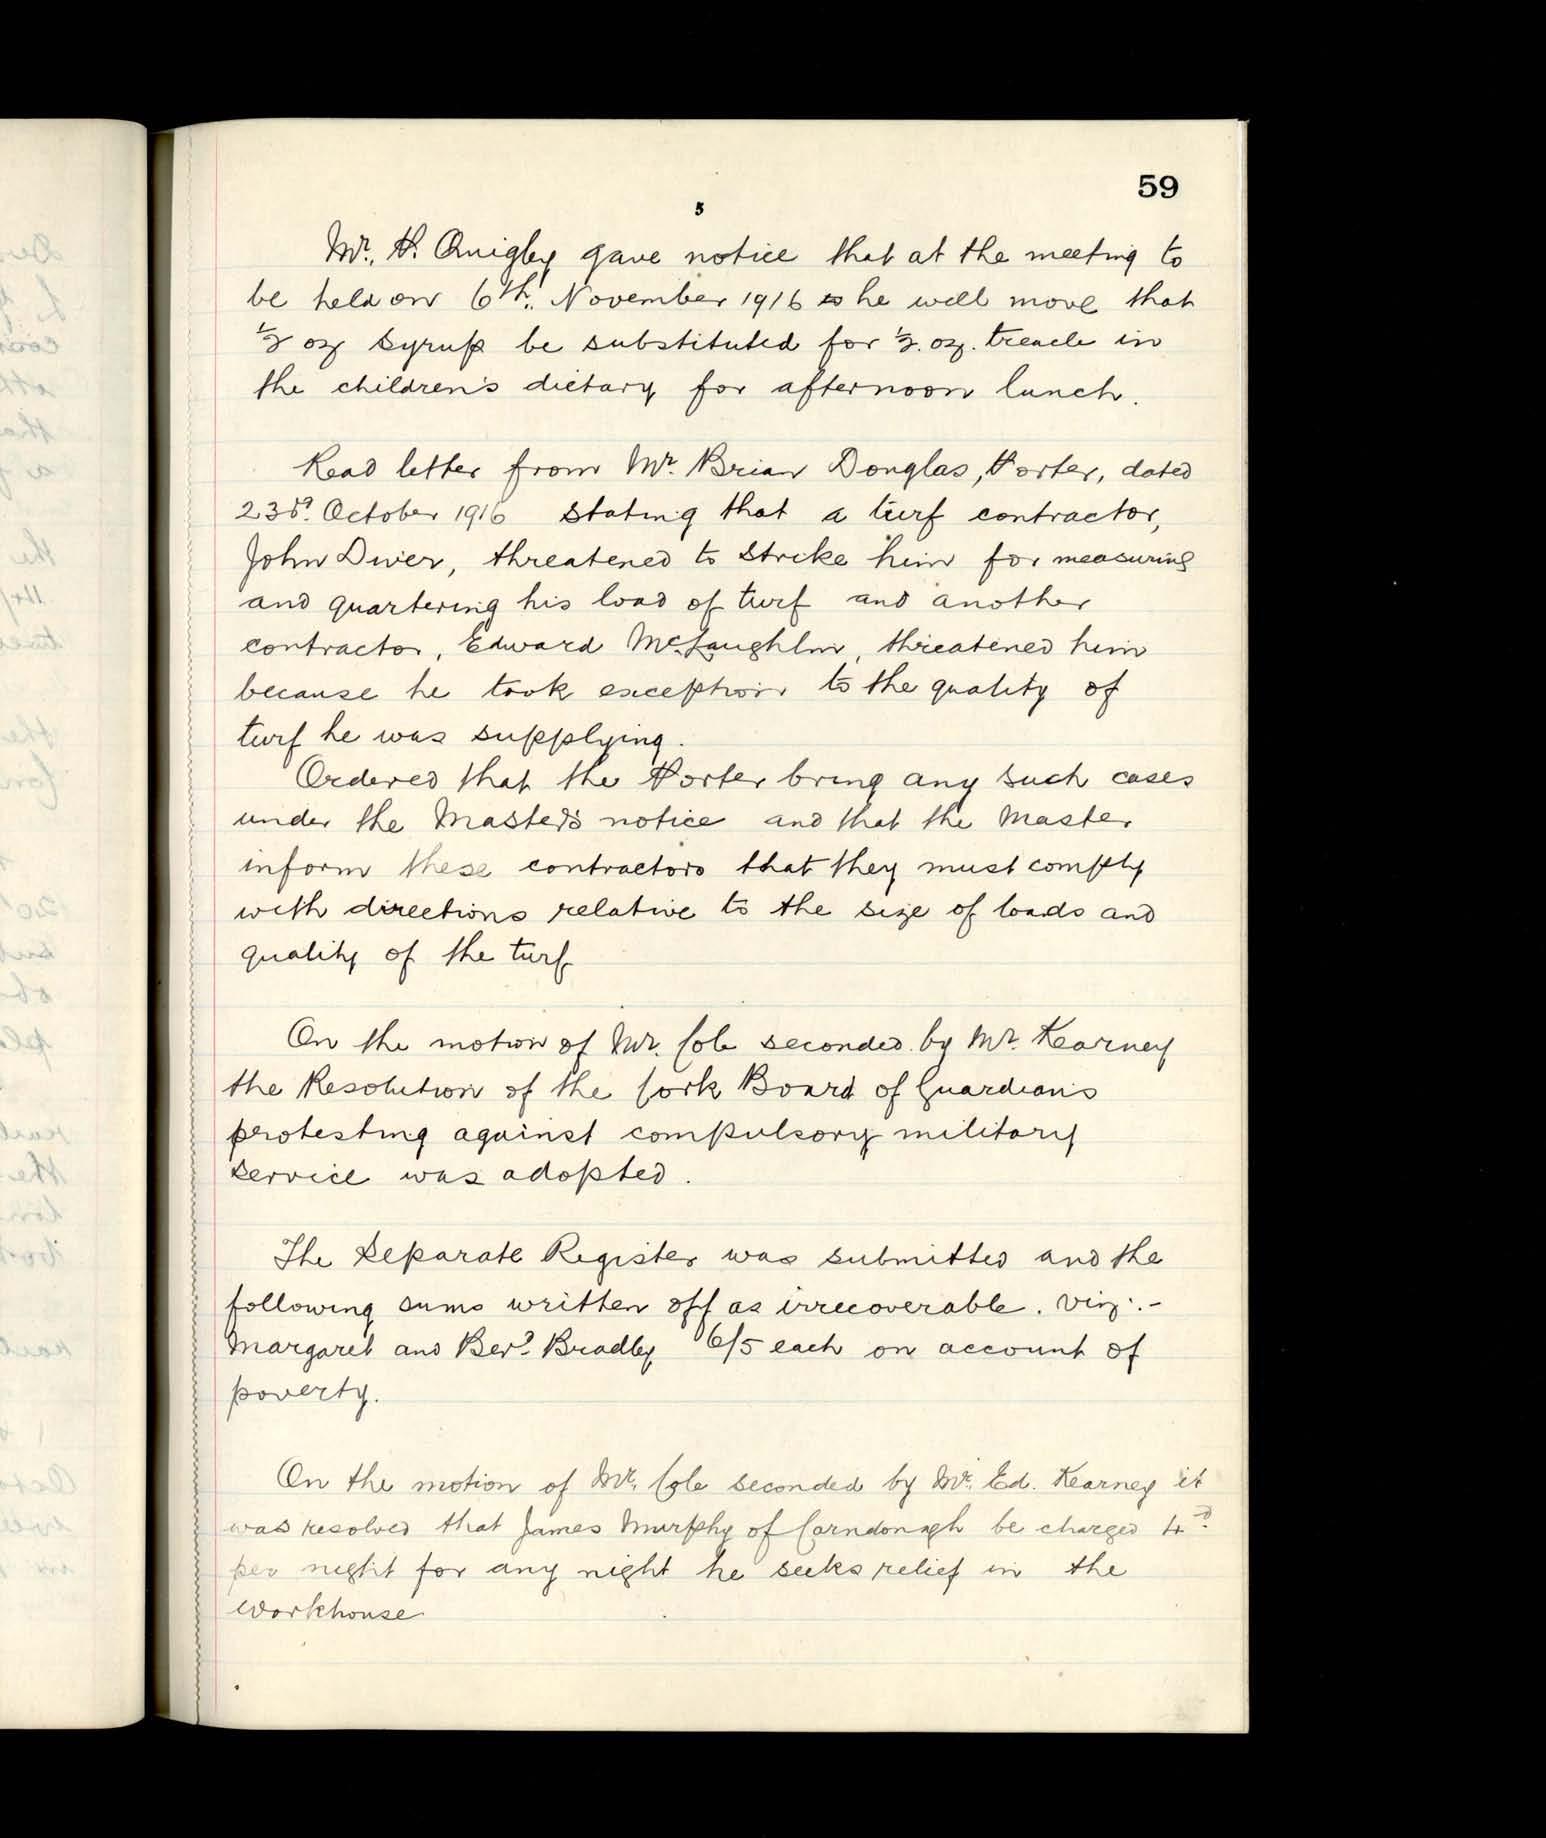 59
5
Mr. P. Quigley gave notice that at the meeting to
be held on 6th. November 1916 he will move that
½ oz syrup be substituted for ½. oz. treacle in
the children's dietary for afternoon lunch.
Read letter from Mr. Brian Donglas, Porter, dated
23rd. October 1916 stating that a turf contractor,
John Diver, threatened to strike him for measuring
and quartering his load of turf and another
contractor, Edward McLaughlin, threatened him
because he took exception to the quality of
turf he was supplying.
Ordered that the Porter bring any such cases
under the Master's notice and that the Master
inform these contractors that they must comply
with directions relative to the size of loads and
quality of the turf
On the motion of Mr. Cole seconded by Mr. Kearney
the Resolution of the Cork Board of Guardians
protesting against compulsory military
service was adopted.
The Separate Register was submitted and the
following sums written off as irrecoverable. viz:-
Margaret and Berd. Bradley 6/5 each on account of
poverty.
On the motion of Mr. Cole seconded by Mr. Ed. Kearney it
was resolved that James Murphy of Carndonagh be charged 4d.
per night for any night he seeks relief in the
workhouse